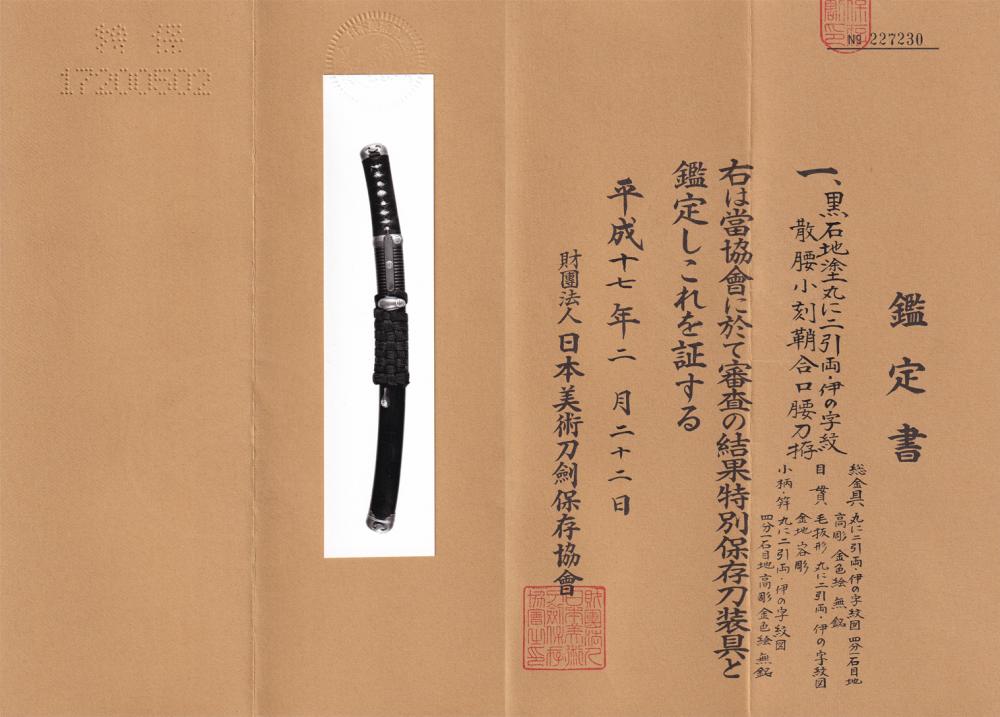 № 227230
鑑定書
一、黒石地塗丸に二引両・伊の字紋
散腰小刻鞘合口腰刀拵
総金具 丸に二引両・伊の字紋図 四分一石目地
高彫 金色絵 無銘
目貫 毛抜形 丸に二引両・伊の字紋図
金地 容彫
小柄・笄 丸に二引両・伊の字紋図
四分一石目地 高彫 金色絵 無銘
右は當協會に於て審査の結果特別保存刀装具と
鑑定しこれを証する
平成十七年二月二十二日
財團法人 日本美術刀劍保存協會
財團法人日本美術刀劍保存協會之印
17200502